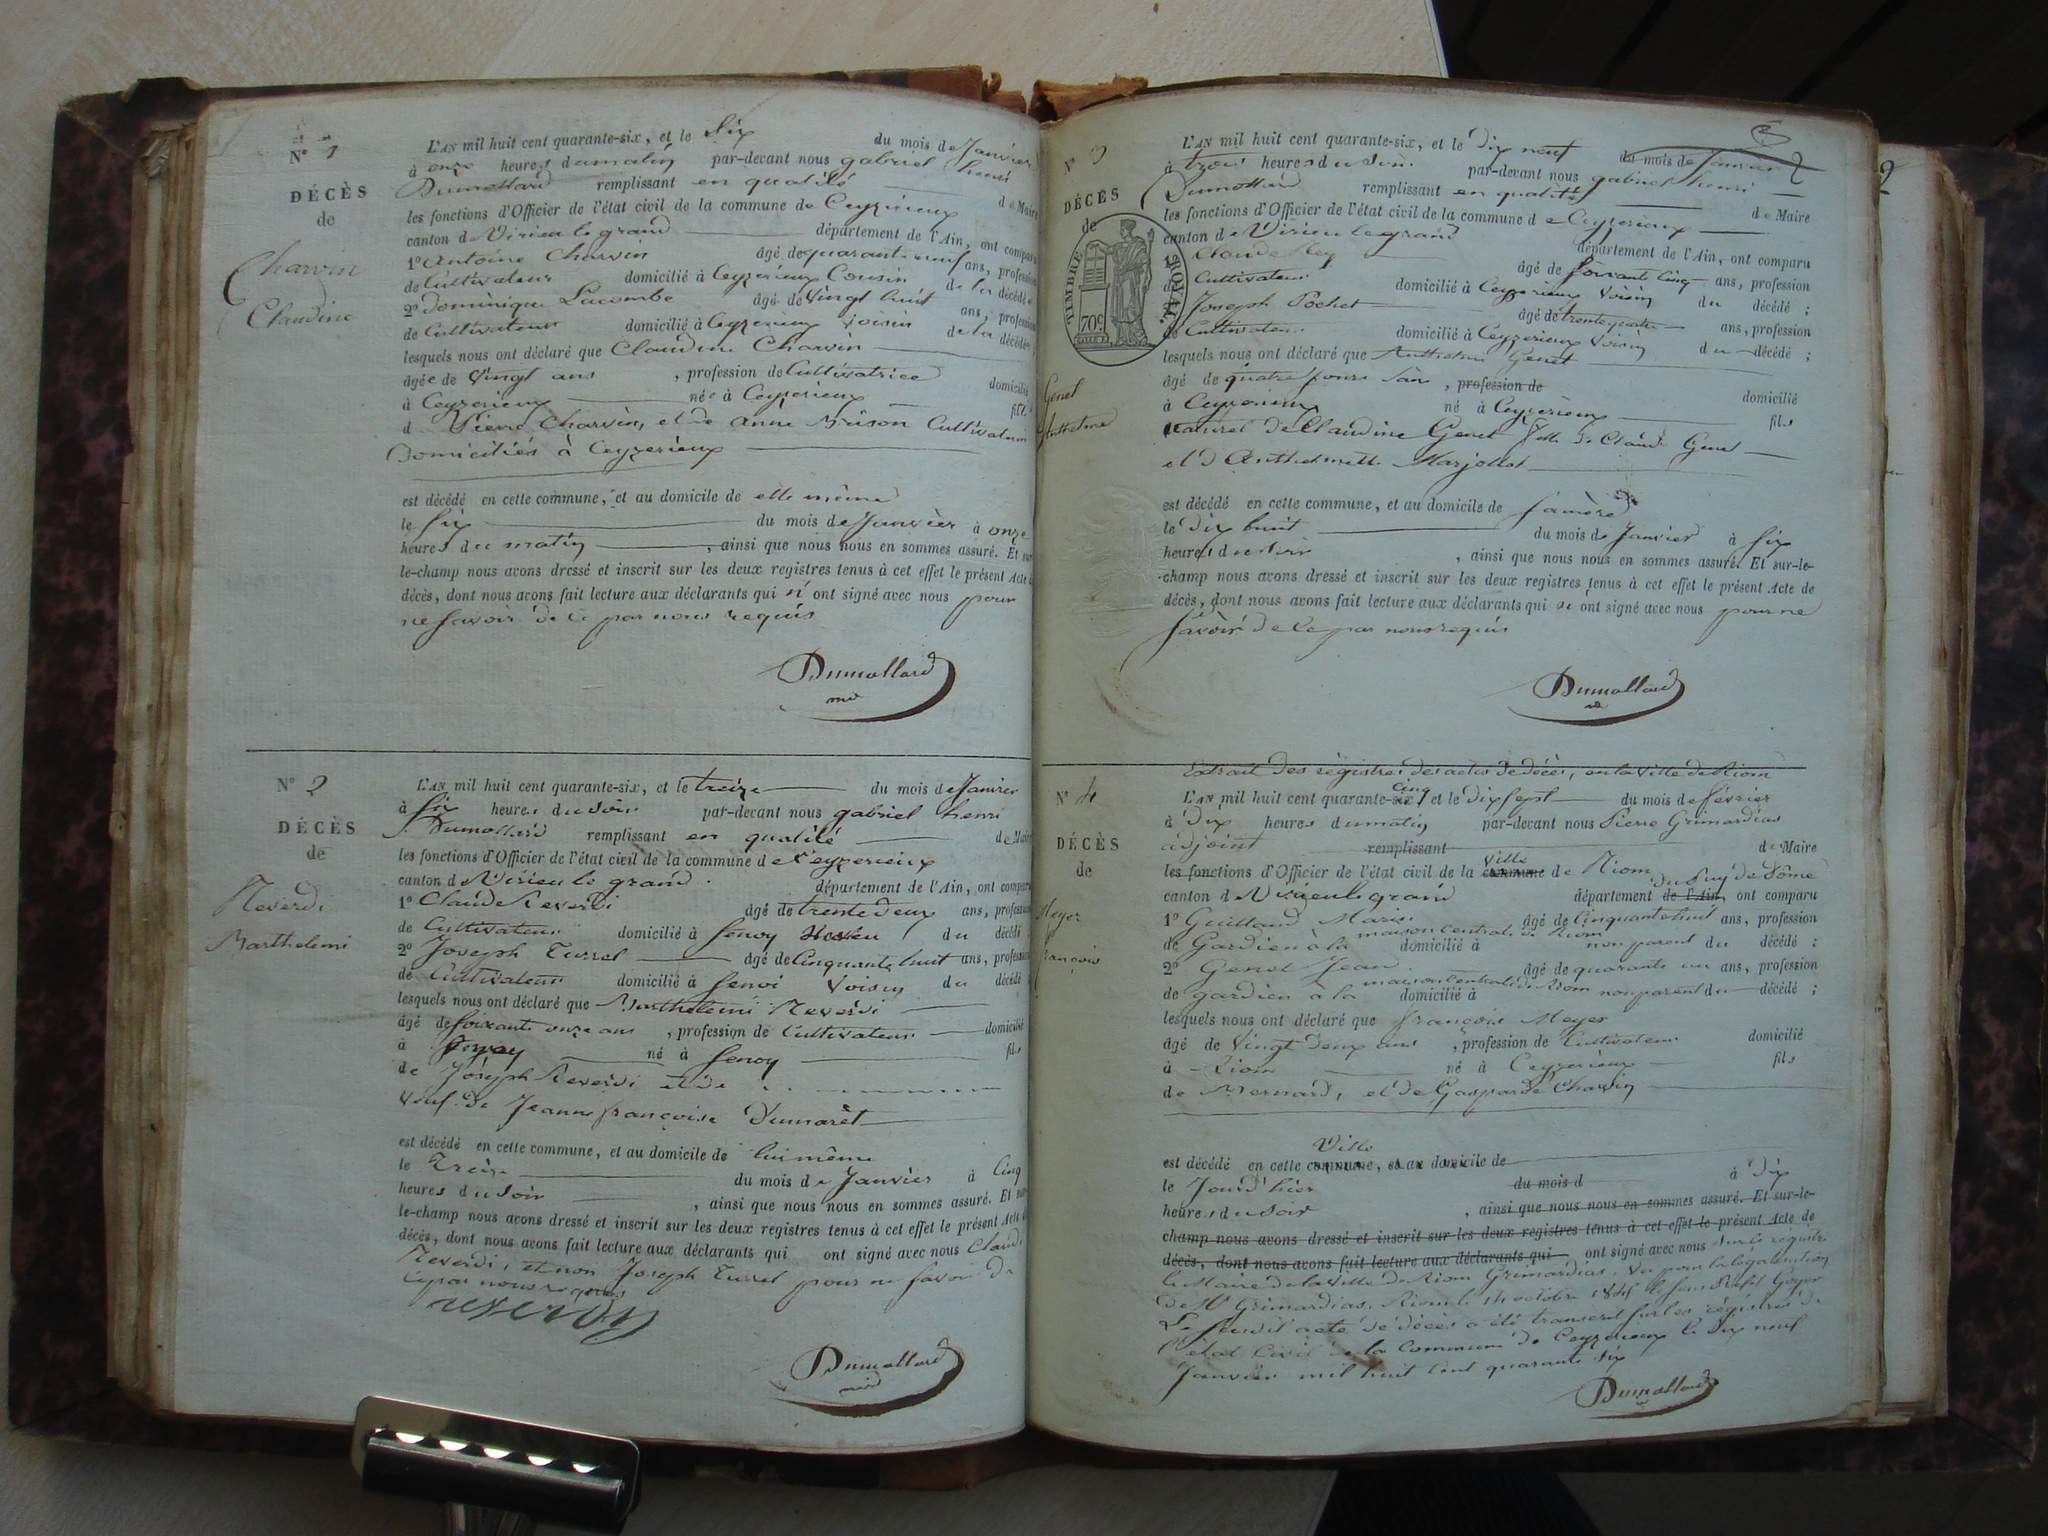 N° 1
DÉCÈS
de
Charvin
Claudine
L'AN mil huit cent quarante-six, et le Six du mois de Janvier
à onze heures du matin par-devant nous gabriel henri
Dumollard remplissant en qualité de Maire
les fonctions d'Officier de l'état civil de la commune de Ceyzerieux
canton de Virieu le grand département de l'Ain, ont comparu
1° Antoine Charvin âgé de quarante neuf ans, profession
de Cultivateur domicilié à Ceyzerieux Cousin de la décédée
2° Dominique Lacombe âgé de vingt huit ans, profession
de Cultivateur domicilié à Ceyzerieux voisin de la décédée
lesquels nous ont déclaré que Claudine Charvin
âgée de vingt ans, profession de Cultivatrice domicilié
à Ceyzerieux née à Ceyzerieux fille
d Pierre Charvin, et de anne Brison Cultivateurs
Domiciliés à Ceyzerieux
est décédé en cette commune, et au domicile de elle même
le six du mois de Janvier à onze
heures du matin, ainsi que nous nous en sommes assuré. Et sur
le-champ nous avons dressé et inscrit sur les deux registres tenus à cet effet le présent Acte de
décès, dont nous avons fait lecture aux déclarants qui n' ont signé avec nous pour
ne savoir de ce par nous requis
Dumollard
N° 2
DÉCÈS
de
Reverdi
Barthelemi
L'AN mil huit cent quarante-six, et le treize du mois de Janvier
à six heures du soir par-devant nous gabriel henri
Dumollard remplissant en qualité de Maire
les fonctions d'Officier de l'état civil de la commune de Ceyzerieux
canton de Virieu le grand département de l'Ain, ont comparu
1° Claude Reverdi âgé de trente deux ans, profession
de Cultivateur domicilié à Senoy du décédé
2° Joseph Turrel âgé de Cinquante huit ans, profession
de Cultivateur domicilié à Senoi voisin du décédé
lesquels nous ont déclaré que Barthelemi Reverdi
âgé de soixante onze ans, profession de Cultivateur domicilié
à Senoy né à Senoy fils
de Joseph Reverdi et de
veuf de Jeanne françoise Dumarêt
est décédé en cette commune, et au domicile de lui même
le Treize du mois de Janvier à Cinq
heures du soir, ainsi que nous nous en sommes assuré. Et sur
le-champ nous avons dressé et inscrit sur les deux registres tenus à cet effet le présent Acte de
décès, dont nous avons fait lecture aux déclarants qui ont signé avec nous Claude
Reverdi, et non Joseph Turrel pour ne savoir de
ce par nous requis
reverdy
Dumollard
N° 3
DÉCÈS
de
TIMBRE ROYAL
70c
Genet
Anthelme
L'AN mil huit cent quarante-six, et le Dix neuf du mois de Janvier 2
à trois heures du soir par-devant nous gabriel henri
Dumollard remplissant en qualité de Maire
les fonctions d'Officier de l'état civil de la commune de Ceyzerieux
canton de Virieu le grand département de l'Ain, ont comparu
Claude Rey âgé de soixante Cinq ans, profession
Cultivateur domicilié à Ceyzerieux Voisin du décédé ;
Joseph Pochet âgé de trente quatre ans, profession
de Cultivateur domicilié à Ceyzerieux Voisin du décédé ;
lesquels nous ont déclaré que Anthelme Genet
âgé de quatre jours, profession de domicilié
à Ceyzerieux né à Ceyzerieux fils
naturel de Claudine Genet fille de Claude Genet
et d Anthelmette Marjollet
est décédé en cette commune, et au domicile de sa mère
le Dix huit du mois de Janvier à six
heures du soir, ainsi que nous nous en sommes assuré. Et sur-le-
champ nous avons dressé et inscrit sur les deux registres tenus à cet effet le présent Acte de
décès, dont nous avons fait lecture aux déclarants qui n' ont signé avec nous pour ne
savoir de ce par nous requis
Dumollard
N° 4
DÉCÈS
de
Meyer
françois
Extrait des régistres des actes de décès, en la ville de Riom
L'AN mil huit cent quarante-six cinq et le dix sept du mois de février
à Dix heures du matin par-devant nous Pierre Grimardias
adjoint remplissant de Maire
les fonctions d'Officier de l'état civil de la commune ville de Riom, du Puy de Dôme
canton de Virieu le grand département de l'Ain, ont comparu
1° Guillaud Marie âgé de Cinquante huit ans, profession
de Gardien à la maison centrale de Riom domicilié à non parent du décédé ;
2° Genet Jean âgé de quarante un ans, profession
de gardien à la maison Centrale de Riom domicilié à non parent du décédé ;
lesquels nous ont déclaré que françois Meyer
âgé de vingt deux ans, profession de Cultivateur domicilié
à Riom né à Ceyzerieux fils
de Bernard, et de Gasparde Charvin
est décédé en cette commune, et au domicile de Ville
le Jourd'hier du mois d à Dix
heures du soir, ainsi que nous nous en sommes assuré. Et sur-le-
champ nous avons dressé et inscrit sur les deux registres tenus à cet effet le présent Acte de
décès, dont nous avons fait lecture aux déclarants qui ont signé avec nous sur le régistre
le Maire de la ville de Riom Grimardias. Vu pour la légalisation
de Mr Grimardias. Riom le 14 octobre 1845
Le susdit acte de décès a été transcrit sur les régistres de
l'état Civil de la commune de Ceyzerieux le Dix neuf
Janvier mil huit cent quarante six
Dumollard
2